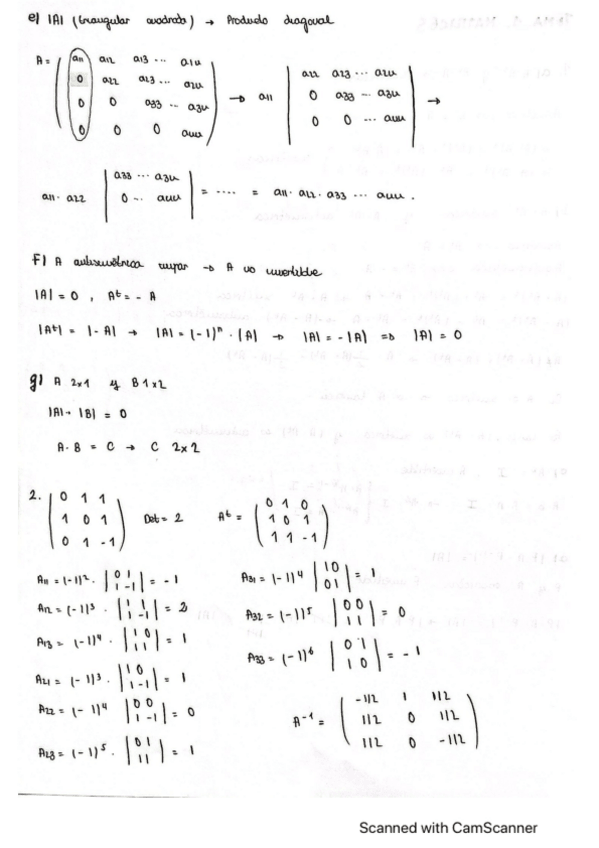 e) |A| (triangular cuadrada) → Producto diagonal
A = ( a11 a12 a13 ... a1n
0 a22 a23 ... a2n
0 0 a33 ... a3n
0 0 0 ann ) → a11 | a22 a23 ... a2n
0 a33 ... a3n
0 0 ... ann | →
a11 · a22 | a33 ... a3n
0 ... ann | = .... = a11 · a22 · a33 ... ann .
f) A antisimétrica impar → A no invertible
|A| = 0 , At = - A
|At| = |- A| → |A| = (-1)^n · |A| → |A| = - |A| => |A| = 0
g) A 2x1 y B 1x2
|A| · |B| = 0
A · B = C → C 2x2
2. ( 0 1 1
1 0 1
0 1 -1 ) Det = 2 At = ( 0 1 0
1 0 1
1 1 -1 )
A11 = (-1)^2 · | 0 1
1 -1 | = -1
A12 = (-1)^3 · | 1 1
1 -1 | = 2
A13 = (-1)^4 · | 1 0
1 1 | = 1
A21 = (-1)^3 · | 1 0
1 -1 | = 1
A22 = (-1)^4 | 0 0
1 -1 | = 0
A23 = (-1)^5 · | 0 1
1 1 | = 1
A31 = (-1)^4 | 1 0
0 1 | = 1
A32 = (-1)^5 | 0 0
1 1 | = 0
A33 = (-1)^6 | 0 1
1 0 | = -1
A^-1 = ( -1/2 1 1/2
1/2 0 1/2
1/2 0 -1/2 )
Scanned with CamScanner